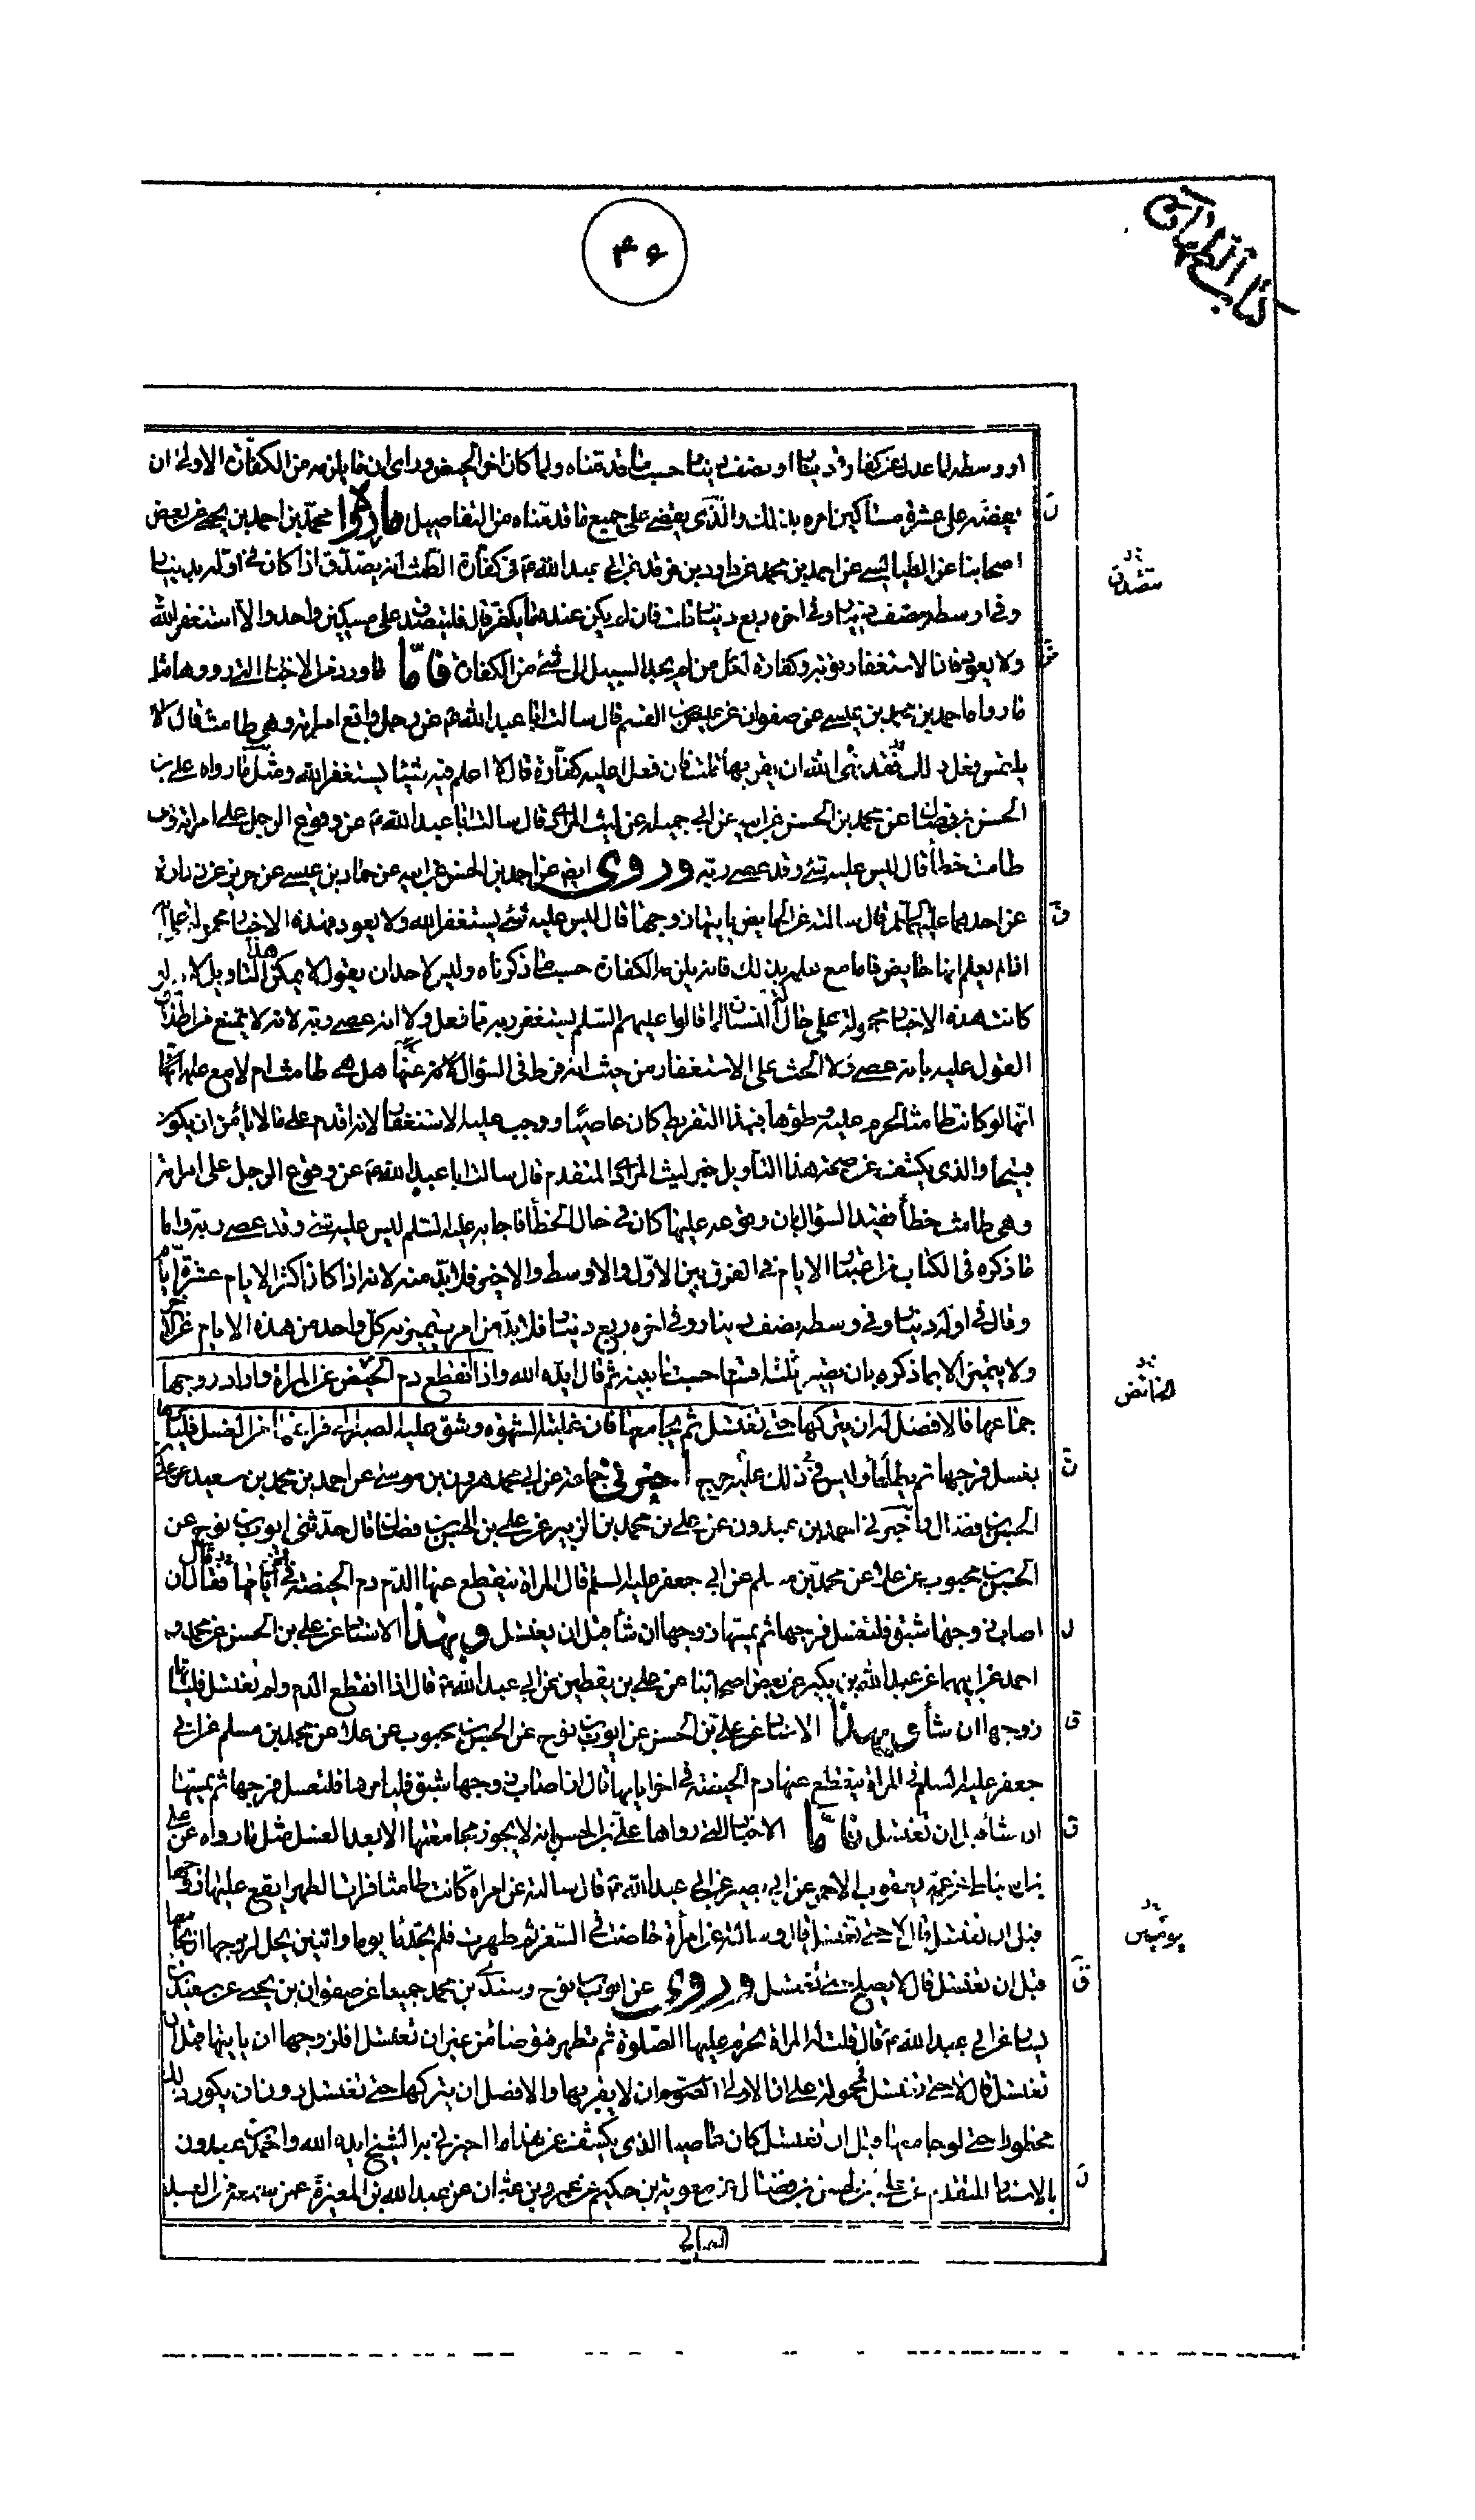 كتاب الطهارة
٤٦
او وسطه لما عدل عن كفارة دينار او نصف دينار حسب ما قدمناه ولما كان اخر الحيض وراى ان ما يلزمه من الكفارة الاولى ان
يفضه على عشرة مساكين امره بذلك والذي يقضي على جميع ما قدمناه من التفاصيل ما رواه محمد بن احمد بن يحيى عن بعض
اصحابنا عن الطيالسي عن احمد بن محمد عن داود بن فرقد عن ابي عبد الله ع في كفارة الطمث انه يتصدق اذا كان في اوله بدينار
وفي اوسطه نصف دينار وفي اخره ربع دينار قلت فان لم يكن عنده ما يكفر قال فليتصدق على مسكين واحد والا استغفر الله
ولا يعود فان الاستغفار توبة وكفارة لكل من لم يجد السبيل الى شئ من الكفارة فاما ما ورد من الاخبار التي رووها مثل
ما رواه احمد بن محمد بن عيسى عن صفوان عن عيص بن القسم قال سالت ابا عبد الله ع عن رجل واقع امراته وهي طامث قال لا
يلتمس فعل ذلك فقد نهى الله ان يقربها قلت فان فعل اعليه كفارة قال لا اعلم فيه شيئا يستغفر الله ومثل ما رواه علي بن
الحسن بن فضال عن محمد بن الحسن عن ابيه عن ابي جميلة عن ليث المرادي قال سالت ابا عبد الله ع عن وقوع الرجل على امراته وهي
طامث خطأ قال ليس عليه شئ وقد عصى ربه وروى ايضا عن احمد بن الحسن عن ابيه عن حماد بن عيسى عن حريز عن زرارة
عن احدهما عليهما السلم قال سالته عن الحايض ياتيها زوجها قال ليس عليه شئ يستغفر الله ولا يعود فهذه الاخبار محمولة على انه
اذا لم يعلم انها حايض فاما مع علمه بذلك فانه يلزمه الكفارة حسب ما ذكرناه وليس لاحد ان يقول لا يمكن هذا التاويل لانه لو
كانت هذه الاخبار محمولة على حال النسيان لما قالوا عليهم السلم يستغفر ربه مما فعل ولا انه عصى ربه لانه لا يمتنع من اطلاق
القول عليه بانه عصى ولا الحث على الاستغفار من حيث انه فرط في السؤال عنها هل هي طامث ام لا مع علمه انها
انها لو كانت طامثا لحرم عليه وطؤها فبهذا التفريط كان عاصيا ووجب عليه الاستغفار لانه اقدم على ما لا يامن ان يكون
قبيحا والذي يكشف عن صحة هذا التاويل خبر ليث المرادي المتقدم قال سالت ابا عبد الله ع عن وقوع الرجل على امراته
وهي طامث خطأ فقيد السؤال بان وقوعه عليها كان في حال الخطأ فاجابه عليه السلم ليس عليه شئ وقد عصى ربه واما
ما ذكره في الكتاب من اعتبار الايام في الفرق بين الاول والاوسط والاخير فلابد منه لانه اذا كان اكثر الايام عشرة ايام
وقال في اوله دينار وفي وسطه نصف دينار وفي اخره ربع دينار فلابد من امر يتميز به كل واحد من هذه الايام عن الاخر
ولا يتميز الا بما ذكره بان يقسم ثلثة اقسام حسب ما بينه ثم قال ايده الله واذا انقطع دم الحيض عن المراة واراد زوجها
جماعها فالافضل له ان يتركها حتى تغتسل ثم يجامعها فان غلبته الشهوة وشق عليه الصبر الى فراغها من الغسل فليامرها
بغسل فرجها ثم يطأها وليس في ذلك عليه حرج اخبرني جماعة عن ابي محمد هرون بن موسى عن احمد بن محمد بن سعيد عن علي بن
الحسن بن فضال واخبرني احمد بن عبدون عن علي بن محمد بن الزبير عن علي بن الحسن بن فضال قال حدثني ايوب بن نوح عن
الحسن بن محبوب عن علا عن محمد بن مسلم عن ابي جعفر عليه السلم قال المراة ينقطع عنها الدم دم الحيضة في اخر ايامها فقال ان
اصاب زوجها شبق فلتغسل فرجها ثم يمسها زوجها ان شأ قبل ان يغتسل وبهذا الاسناد عن علي بن الحسن عن محمد و
احمد عن ابيهما عن عبد الله بن بكير عن بعض اصحابنا عن علي بن يقطين عن ابي عبد الله ع قال اذا انقطع الدم ولم تغتسل فلياتها
زوجها ان شأ وبهذا الاسناد عن علي بن الحسن عن ايوب بن نوح عن الحسن بن محبوب عن علا عن محمد بن مسلم عن ابي
جعفر عليه السلم في المراة ينقطع عنها دم الحيضة في اخر ايامها قال اذا اصاب زوجها شبق فليامرها فلتغسل فرجها ثم يمسها
ان شأ قبل ان تغتسل فاما الاخبار التي رواها علي بن الحسن انه لا يجوز مجامعتها الا بعد الغسل مثل ما رواه عن علي
بن اسباط عن عمه يعقوب الاحمر عن ابي بصير عن ابي عبد الله ع قال سالته عن امراة كانت طامثا فرات الطهر ايقع عليها زوجها
قبل ان تغتسل قال لا حتى تغتسل قال وسالته عن امراة حاضت في السفر ثم طهرت فلم تجد ماء يوما واثنين يحل لزوجها ان يجامعها
قبل ان تغتسل قال لا يصلح حتى تغتسل وروى عن ايوب بن نوح وسندي بن محمد جميعا عن صفوان بن يحيى عن سعيد بن
يسار عن ابي عبد الله ع قال قلت له المراة تحرم عليها الصلوة ثم تطهر فتوضا من غير ان تغتسل افلزوجها ان ياتيها قبل ان
تغتسل قال لا حتى تغتسل فمحمولة على ان الاولى ان لا يقربها والافضل ان يتركها حتى تغتسل دون ان يكون ذلك
محظورا حتى لو جامعها قبل ان تغتسل كان عاصيا الذي يكشف عن هذا ما اخبرني به الشيخ ايده الله واحمد بن عبدون
بالاسناد المتقدم عن علي بن الحسن بن فضال عن معوية بن حكيم عن عمرو بن عثمان عن عبد الله بن المغيرة عمن سمعه من العبد
الصالح
يتصدق
الحائض
يومين